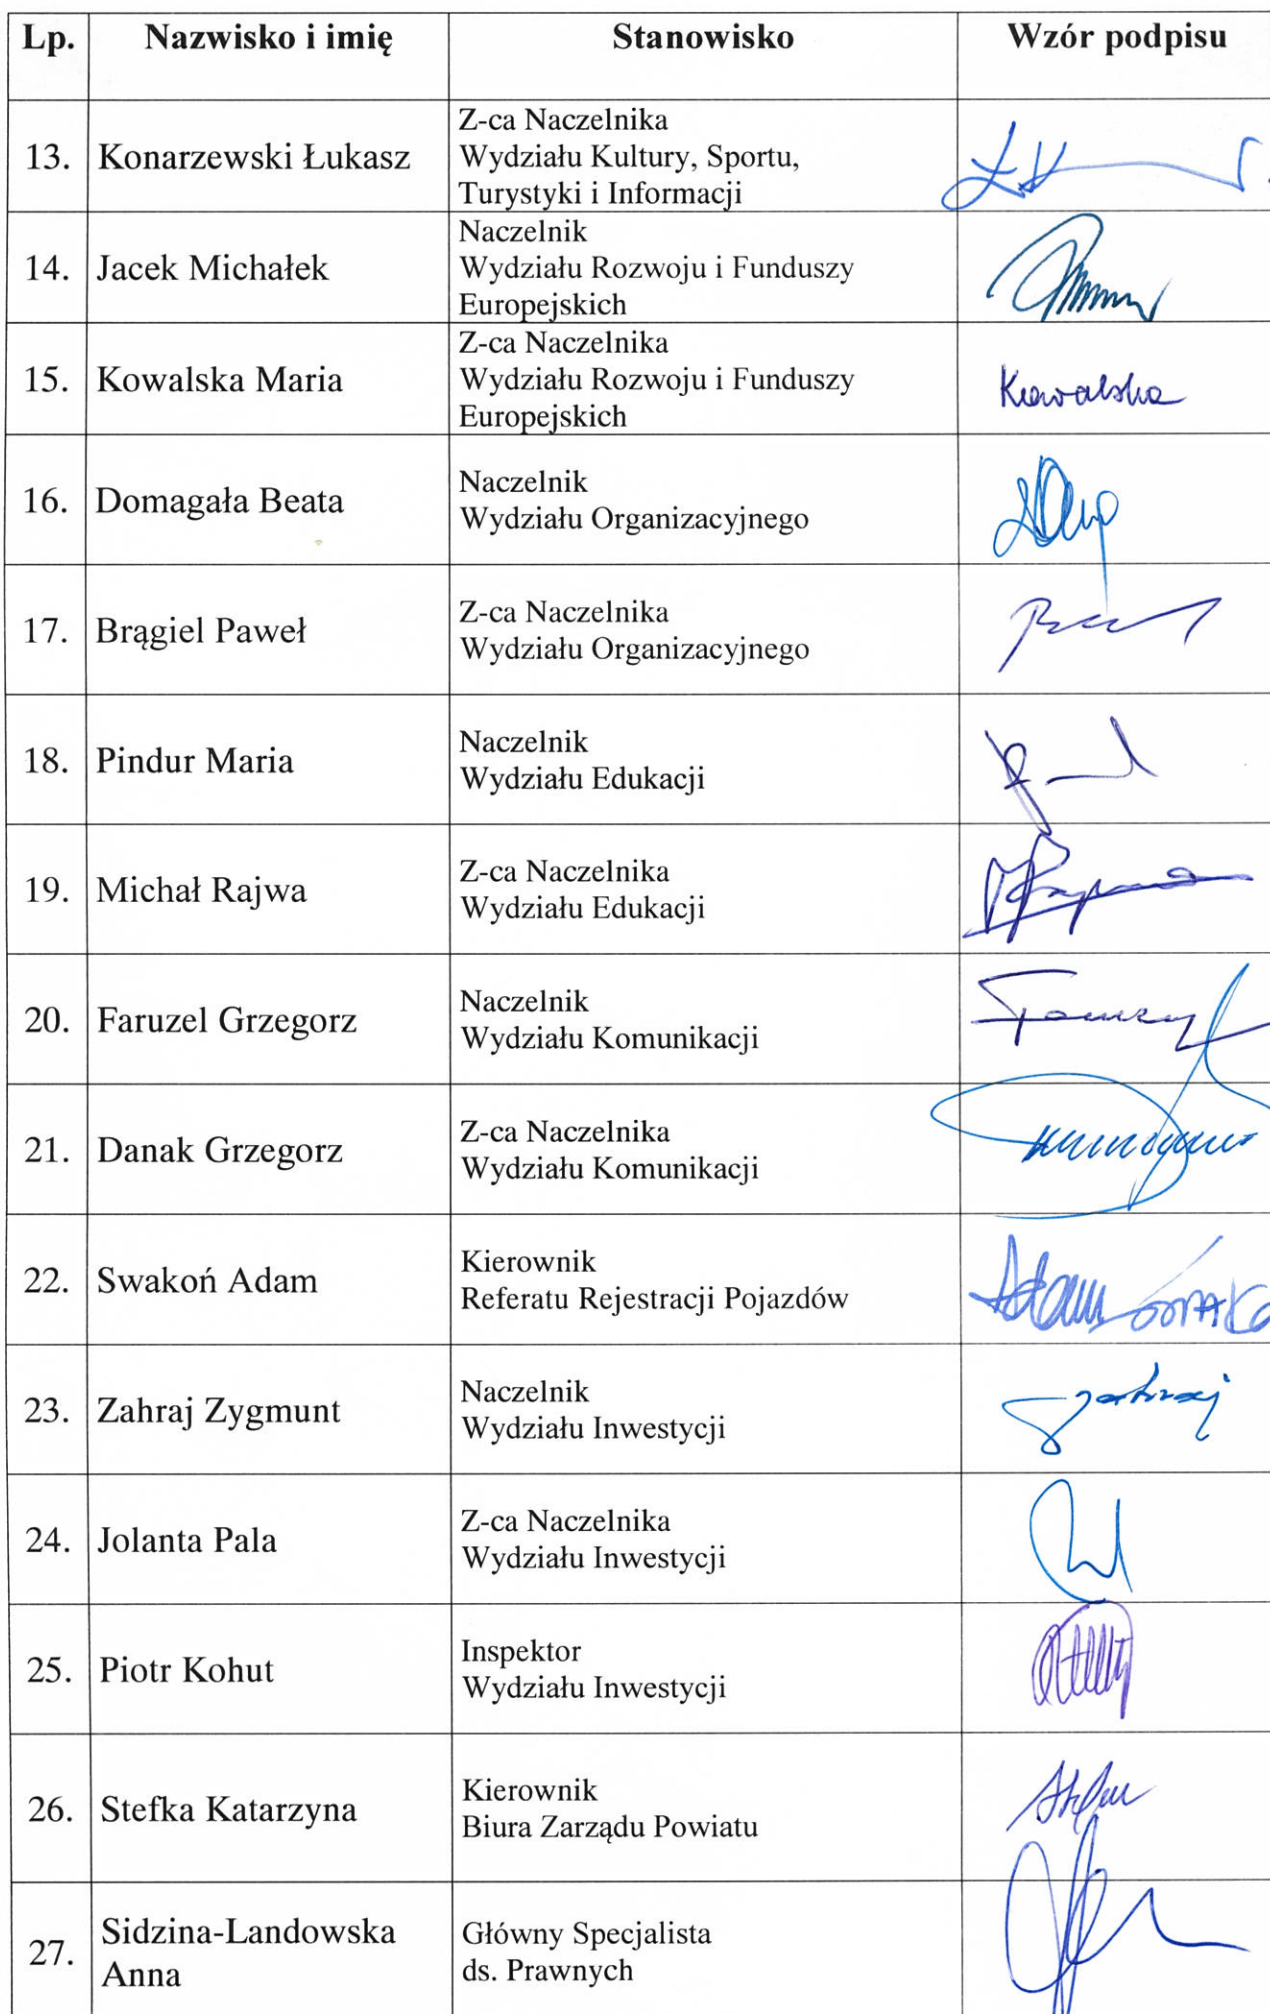 Lp. Nazwisko i imię Stanowisko Wzór podpisu
13. Konarzewski Łukasz
Z-ca Naczelnika
Wydziału Kultury, Sportu,
Turystyki i Informacji
14. Jacek Michałek
Naczelnik
Wydziału Rozwoju i Funduszy
Europejskich
15. Kowalska Maria
Z-ca Naczelnika
Wydziału Rozwoju i Funduszy
Europejskich
Kowalska
16. Domagała Beata
Naczelnik
Wydziału Organizacyjnego
17. Brągiel Paweł
Z-ca Naczelnika
Wydziału Organizacyjnego
18. Pindur Maria
Naczelnik
Wydziału Edukacji
19. Michał Rajwa
Z-ca Naczelnika
Wydziału Edukacji
20. Faruzel Grzegorz
Naczelnik
Wydziału Komunikacji
21. Danak Grzegorz
Z-ca Naczelnika
Wydziału Komunikacji
22. Swakoń Adam
Kierownik
Referatu Rejestracji Pojazdów
Adam
23. Zahraj Zygmunt
Naczelnik
Wydziału Inwestycji
24. Jolanta Pala
Z-ca Naczelnika
Wydziału Inwestycji
25. Piotr Kohut
Inspektor
Wydziału Inwestycji
26. Stefka Katarzyna
Kierownik
Biura Zarządu Powiatu
27. Sidzina-Landowska
Anna
Główny Specjalista
ds. Prawnych